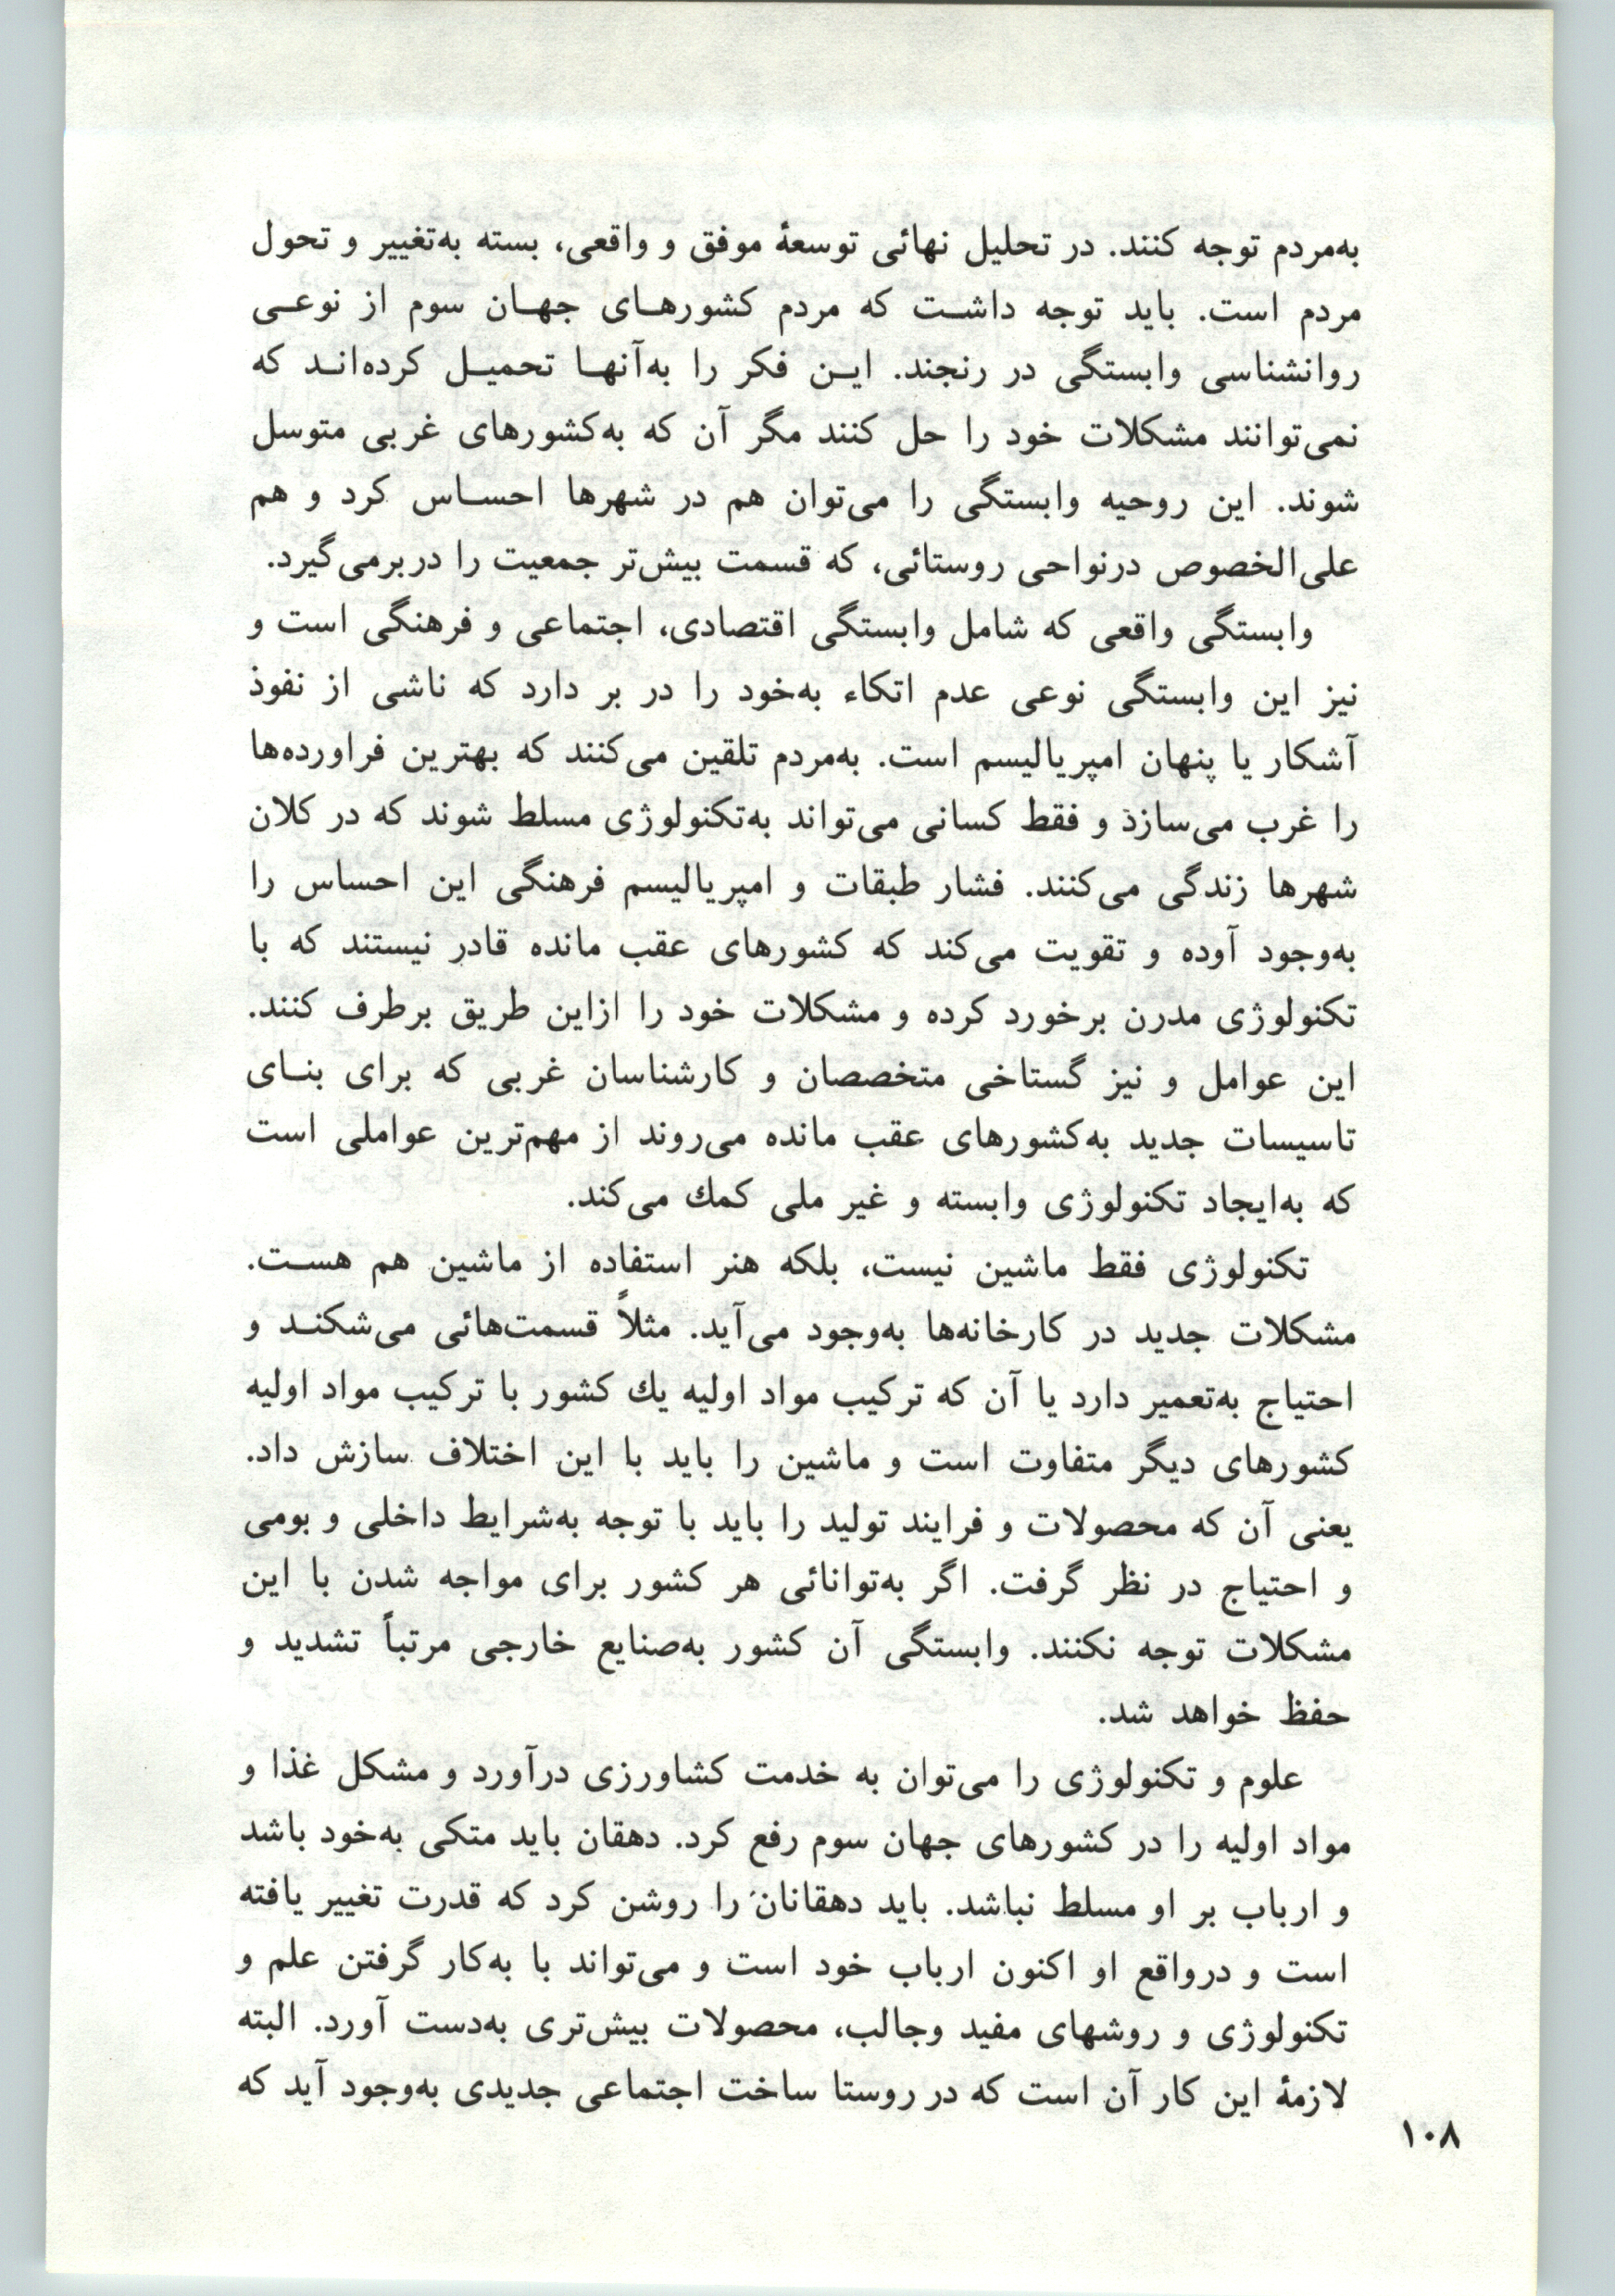 به‌مردم توجه کنند. در تحلیل نهائی توسعهٔ موفق و واقعی، بسته به‌تغییر و تحول
مردم است. باید توجه داشـت که مردم کشورهـای جهـان سوم از نوعـی
روانشناسی وابستگی در رنجند. ایـن فکر را به‌آنهـا تحمیـل کرده‌انـد که
نمی‌توانند مشکلات خود را حل کنند مگر آن که به‌کشورهای غربی متوسل
شوند. این روحیه وابستگی را می‌توان هم در شهرها احسـاس کرد و هم
علی‌الخصوص درنواحی روستائی، که قسمت بیش‌تر جمعیت را دربرمی‌گیرد.
وابستگی واقعی که شامل وابستگی اقتصادی، اجتماعی و فرهنگی است و
نیز این وابستگی نوعی عدم اتکاء به‌خود را در بر دارد که ناشی از نفوذ
آشکار یا پنهان امپریالیسم است. به‌مردم تلقین می‌کنند که بهترین فراورده‌ها
را غرب می‌سازذ و فقط کسانی می‌تواند به‌تکنولوژی مسلط شوند که در کلان
شهرها زندگی می‌کنند. فشار طبقات و امپریالیسم فرهنگی این احساس را
به‌وجود آوده و تقویت می‌کند که کشورهای عقب مانده قادر نیستند که با
تکنولوژی مدرن برخورد کرده و مشکلات خود را ازاین طریق برطرف کنند.
این عوامل و نیز گستاخی متخصصان و کارشناسان غربی که برای بنـای
تاسیسات جدید به‌کشورهای عقب مانده می‌روند از مهم‌ترین عواملی است
که به‌ایجاد تکنولوژی وابسته و غیر ملی کمك می‌کند.
تکنولوژی فقط ماشین نیست، بلکه هنر استفاده از ماشین هم هسـت.
مشکلات جدید در کارخانه‌ها به‌وجود می‌آید. مثلاً قسمت‌هائی می‌شکنـد و
احتیاج به‌تعمیر دارد یا آن که ترکیب مواد اولیه یك کشور با ترکیب مواد اولیه
کشورهای دیگر متفاوت است و ماشین را باید با این اختلاف سازش داد.
یعنی آن که محصولات و فرایند تولید را باید با توجه به‌شرایط داخلی و بومی
و احتیاج در نظر گرفت. اگر به‌توانائی هر کشور برای مواجه شدن با این
مشکلات توجه نکنند. وابستگی آن کشور به‌صنایع خارجی مرتباً تشدید و
حفظ خواهد شد.
علوم و تکنولوژی را می‌توان به خدمت کشاورزی درآورد و مشکل غذا و
مواد اولیه را در کشورهای جهان سوم رفع کرد. دهقان باید متکی به‌خود باشد
و ارباب بر او مسلط نباشد. باید دهقانان را روشن کرد که قدرت تغییر یافته
است و درواقع او اکنون ارباب خود است و می‌تواند با به‌کار گرفتن علم و
تکنولوژی و روشهای مفید وجالب، محصولات بیش‌تری به‌دست آورد. البته
لازمهٔ این کار آن است که در روستا ساخت اجتماعی جدیدی به‌وجود آید که
۱۰۸